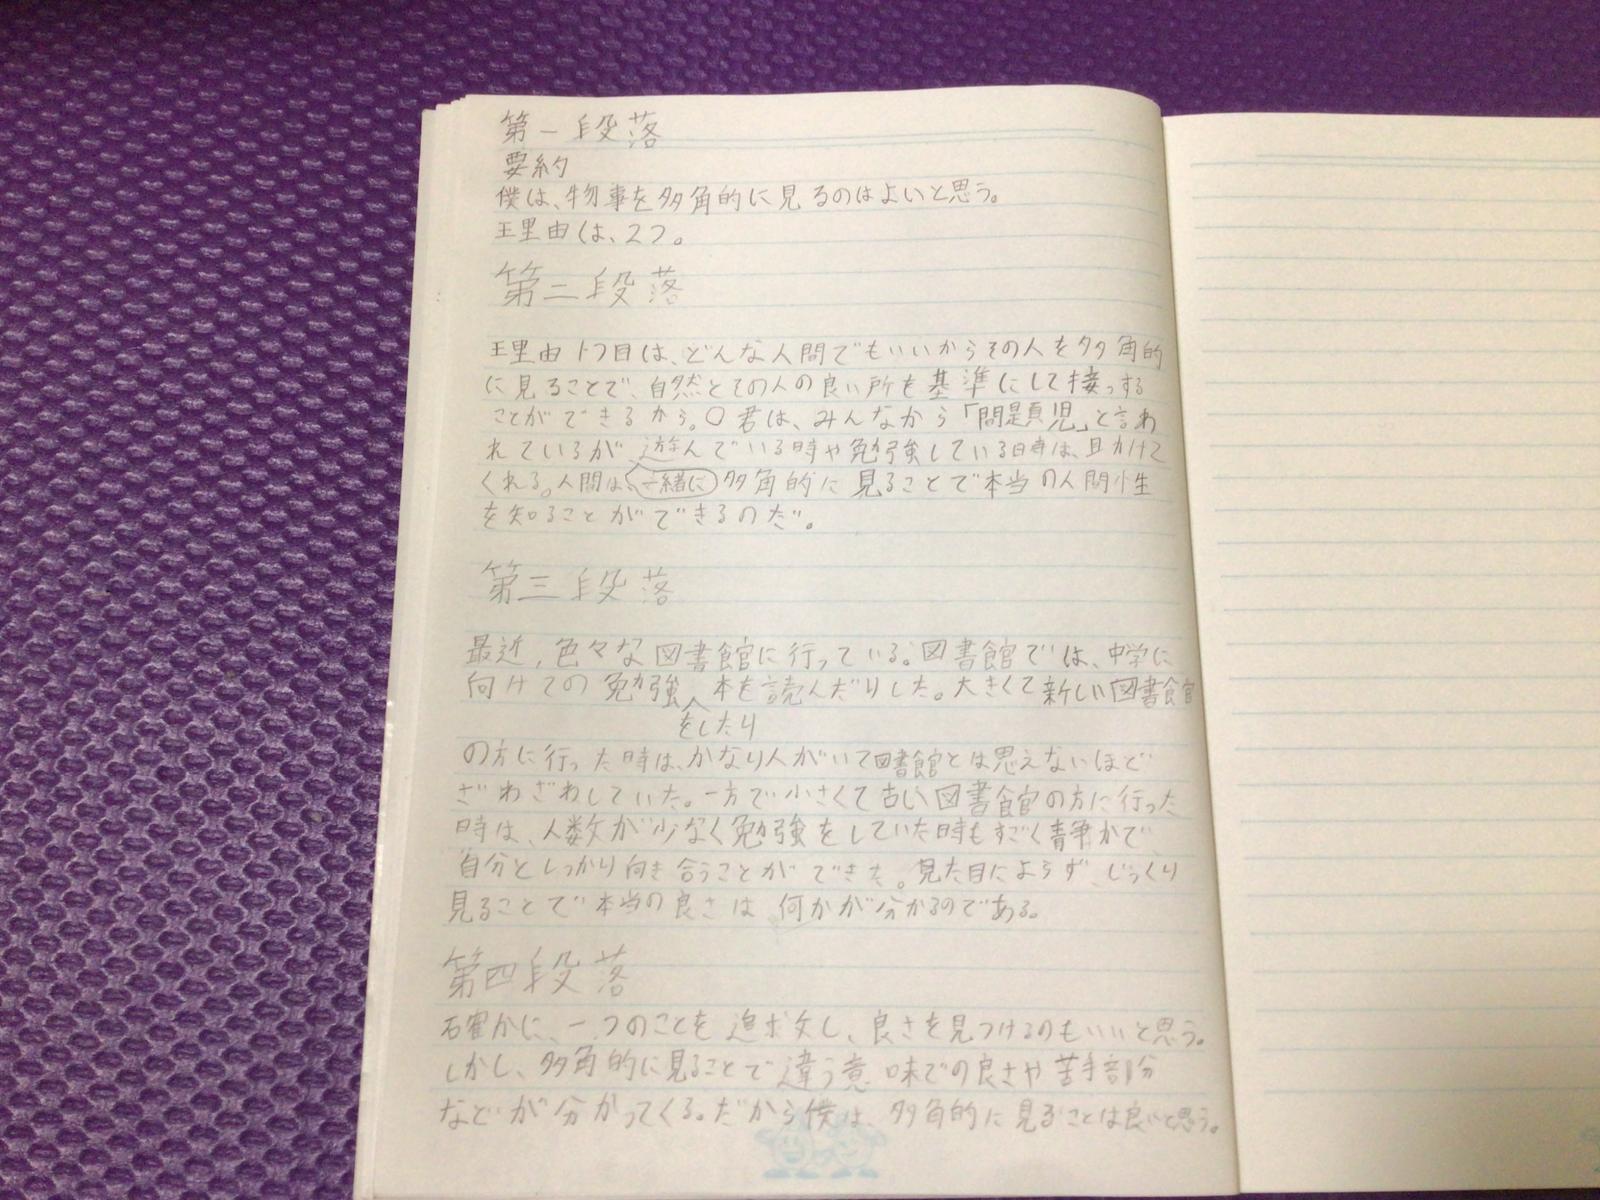 第一段落
要約
僕は、物事を多角的に見るのはよいと思う。
理由は、2つ。
第二段落
理由1つ目は、どんな人間でもいいからその人を多角的
に見ることで、自然とその人の良い所を基準にして接っする
ことができるから。〇君は、みんなから「問題児」と言わ
れているが、遊んでいる時や勉強している時は、助けて
くれる。人間は、一緒に多角的に見ることで本当の人間性
を知ることができるのだ。
第三段落
最近、色々な図書館に行っている。図書館では、中学に
向けての勉強 本を読んだりした。大きくて新しい図書館
をしたり
の方に行った時は、かなり人がいて図書館とは思えないほど
ざわざわしていた。一方で小さくて古い図書館の方に行った
時は、人数が少なく勉強をしていた時もすごく静かで、
自分としっかり向き合うことができた。見た目によらず、じっくり
見ることで本当の良さは何かが分かるのである。
第四段落
確かに、一つのことを追求し、良さを見つけるのもいいと思う。
しかし、多角的に見ることで違う意味での良さや苦手部分
などが分かってくる。だから僕は、多角的に見ることは良いと思う。